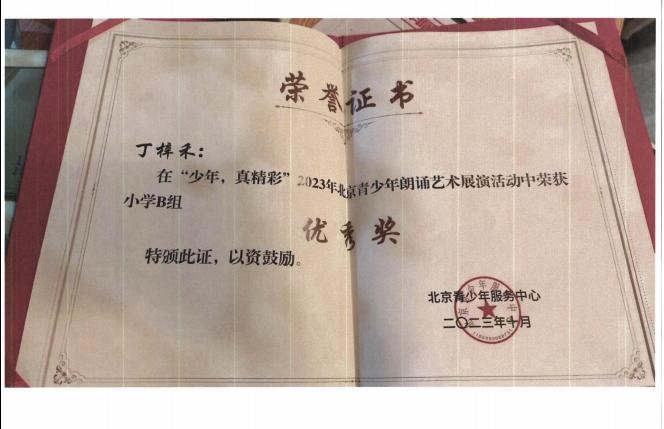 荣誉证书
丁梓禾：
在“少年，真精彩”2023年北京青少年朗诵艺术展演活动中荣获
小学B组
优秀奖
特颁此证，以资鼓励。
北京青少年服务中心
二〇二三年十月